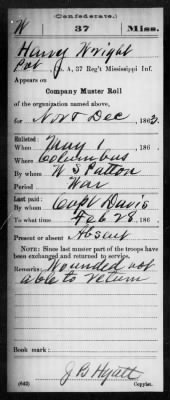 (Confederate.)
W 37 Miss.
Harvy Wright
Pvt, Co. A, 37 Reg't Mississippi Inf.
Appears on
Company Muster Roll
of the organization named above,
for Nov & Dec, 1863.
Enlisted:
When May 1, 186
Where Columbus
By whom W S Patton
Period War
Last paid:
By whom Capt Davis
To what time Feb 28, 186
Present or absent Absent
NOTE: Since last muster part of the troops have
been exchanged and returned to service.
Remarks: Wounded not
able to return
Book mark:
J B Hyatt
(642) Copyist.